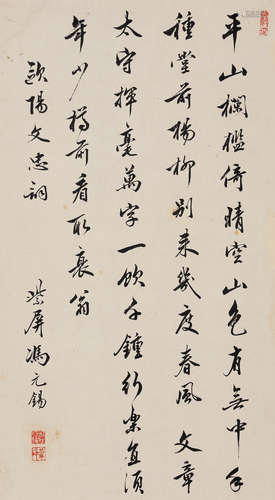 平山欄檻倚晴空山色有無中手
種堂前楊柳別來幾度春風文章
太守揮毫萬字一飲千鍾行樂直須
年少樽前看取衰翁
歐陽文忠詞
紫屏馮元錫